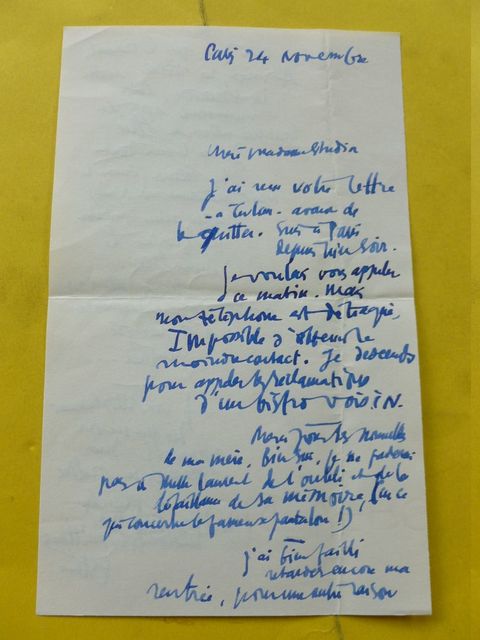 24 Novembre
Chère Madame
J'ai reçu votre lettre
à Toulon. avant de
le quitter. Suis à Paris
depuis hier soir.
Je voulais vous appeler
ce matin. Mais
mon téléphone est détraqué,
Impossible d'obtenir le
moindre contact. Je descends
pour appeler les réclamations
d'un bistro voisin.
Merci pour les nouvelles
de ma mère. Bien sûr, je ne
pas à Melle Laurent de l'oubli et de la
défaillance de sa mémoire, (en ce
qui concerne le fameux pantalon !)
J'ai bien failli
retarder encore ma
rentrée, pour une autre raison